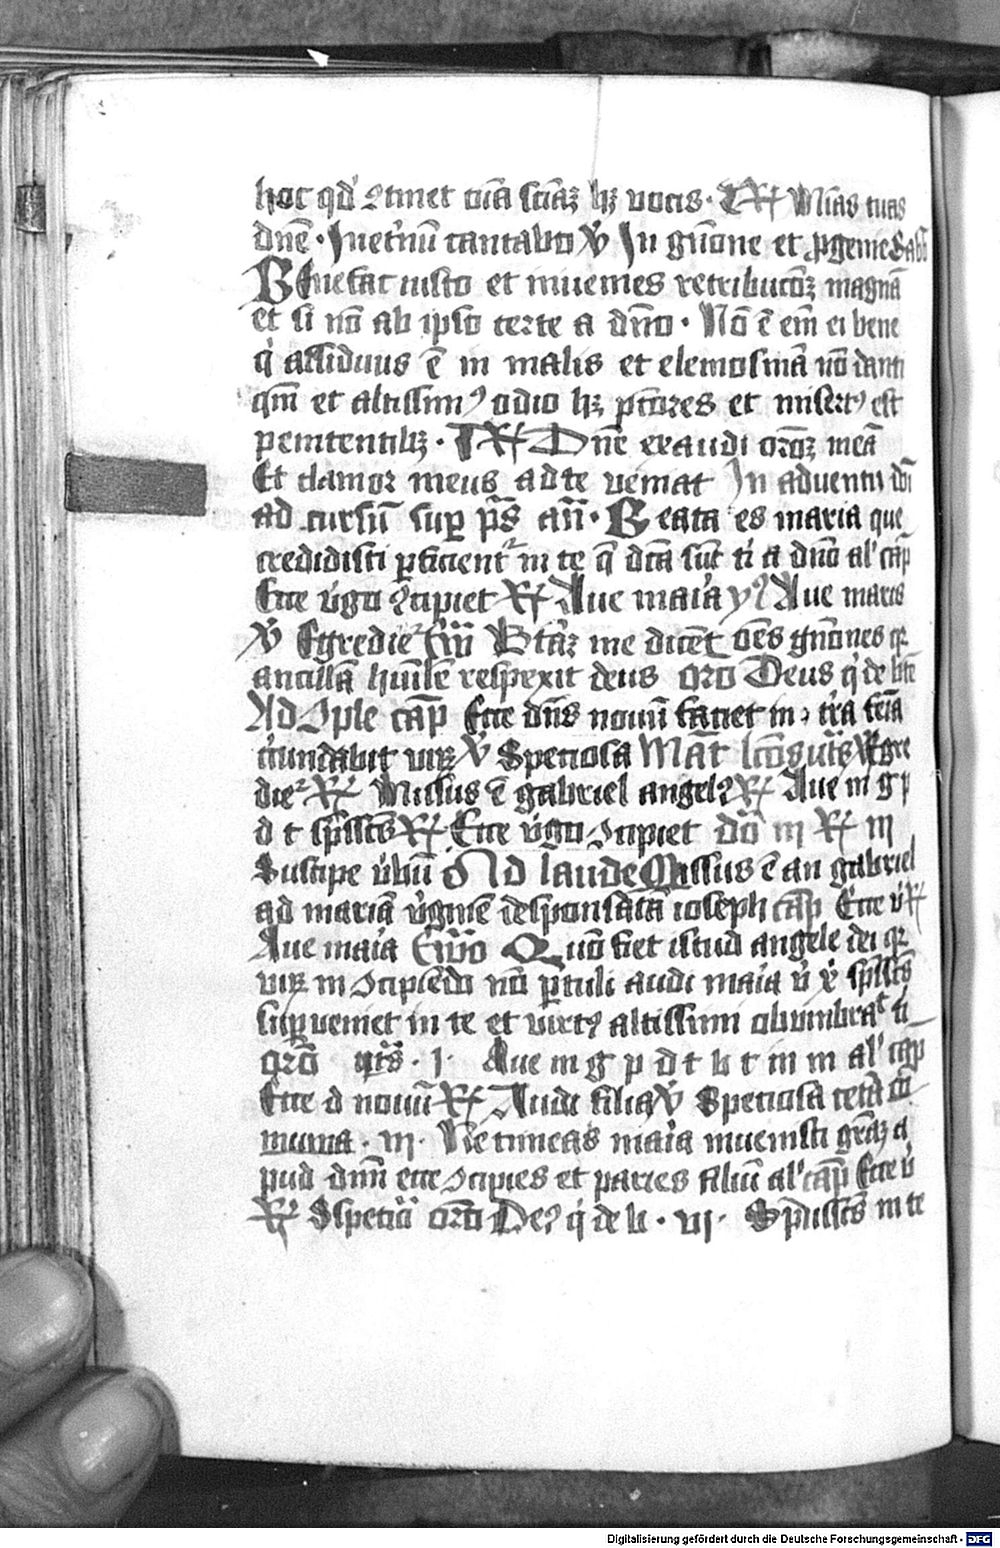 hoc qd' ꝯtinet oīa sciāꝫ hꝫ vocis · R͞ Mīas tuas
dnē · In et'nū cantabo V̊ In gn̄one et ꝓgenie Sabb
Benefac iusto et inuenies retributōꝫ magnā
et si nō ab ipso certe a dn̄o · Nō ē em̄ ei bene
q' assiduus ē in malis et elemosinā nō danti
qm̄ et altissimꝰ odio hꝫ pctōres et misertꝰ est
penitentibꝫ · R͞ Dn̄e exaudi orōꝫ meā
Et clamor meus ad te veniat In aduentu dn̄i
ad cursū suꝑ ps̄ an̄ · Beata es maria que
credidisti ꝑficient' in te q̄ dc̄a sūt ti' a dn̄o al' cap̄
Ecce v'go ꝯcipiet R͞ Aue maia yꝰ Aue maris
V̊ Egredie' Btāꝫ me dicēt oēs gn̄ones qꝛ
ancillā humilē respexit deus oro Deus q' de btē
Ad cap̄ Ecce dn̄s nouū faciet in t'ra feīa
c'cundabit virꝫ V̊ Speciosa Mat̄ Egre
die' R͞ Missus ē gabriel angelꝰ R͞ Aue m g p
d t sp̄sscs̄ R͞ Ecce v'go ꝯcipiet dō iii R͞ iii
Suscipe v'bū Ad laude Missus ē an gabriel
ad mariā v'ginē desponsatā ioseph cap̄ Ecce v' R͞
Aue maia Quō fiet istud angele dei qꝛ
virꝫ in ꝯcipiēdo nō ꝑtuli audi maia v' sp̄sscs̄
suꝑueniet in te et virtꝰ altissimi obumbrat ti'
orō · i · Aue m g p d t b t in m al' cap̄
Ecce d nouū R͞ Audi filia V̊ Speciosa
· iii · Ne timeas maia inuenisti grāꝫ a
pud dn̄m ecce ꝯcipies et paries filiū al' cap̄ Ecce v'
R͞ Speciō orō Deꝰ q' de b · vi · Sp̄usscs̄ in te
Digitalisierung gefördert durch die Deutsche Forschungsgemeinschaft - DFG